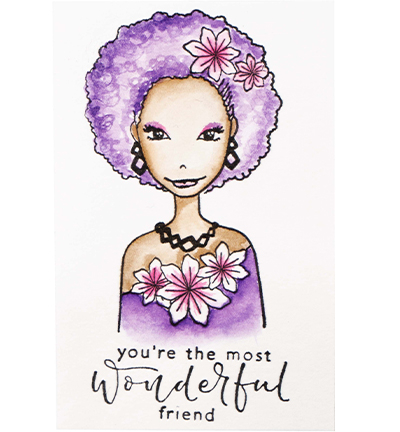 you're the most
wonderful
friend